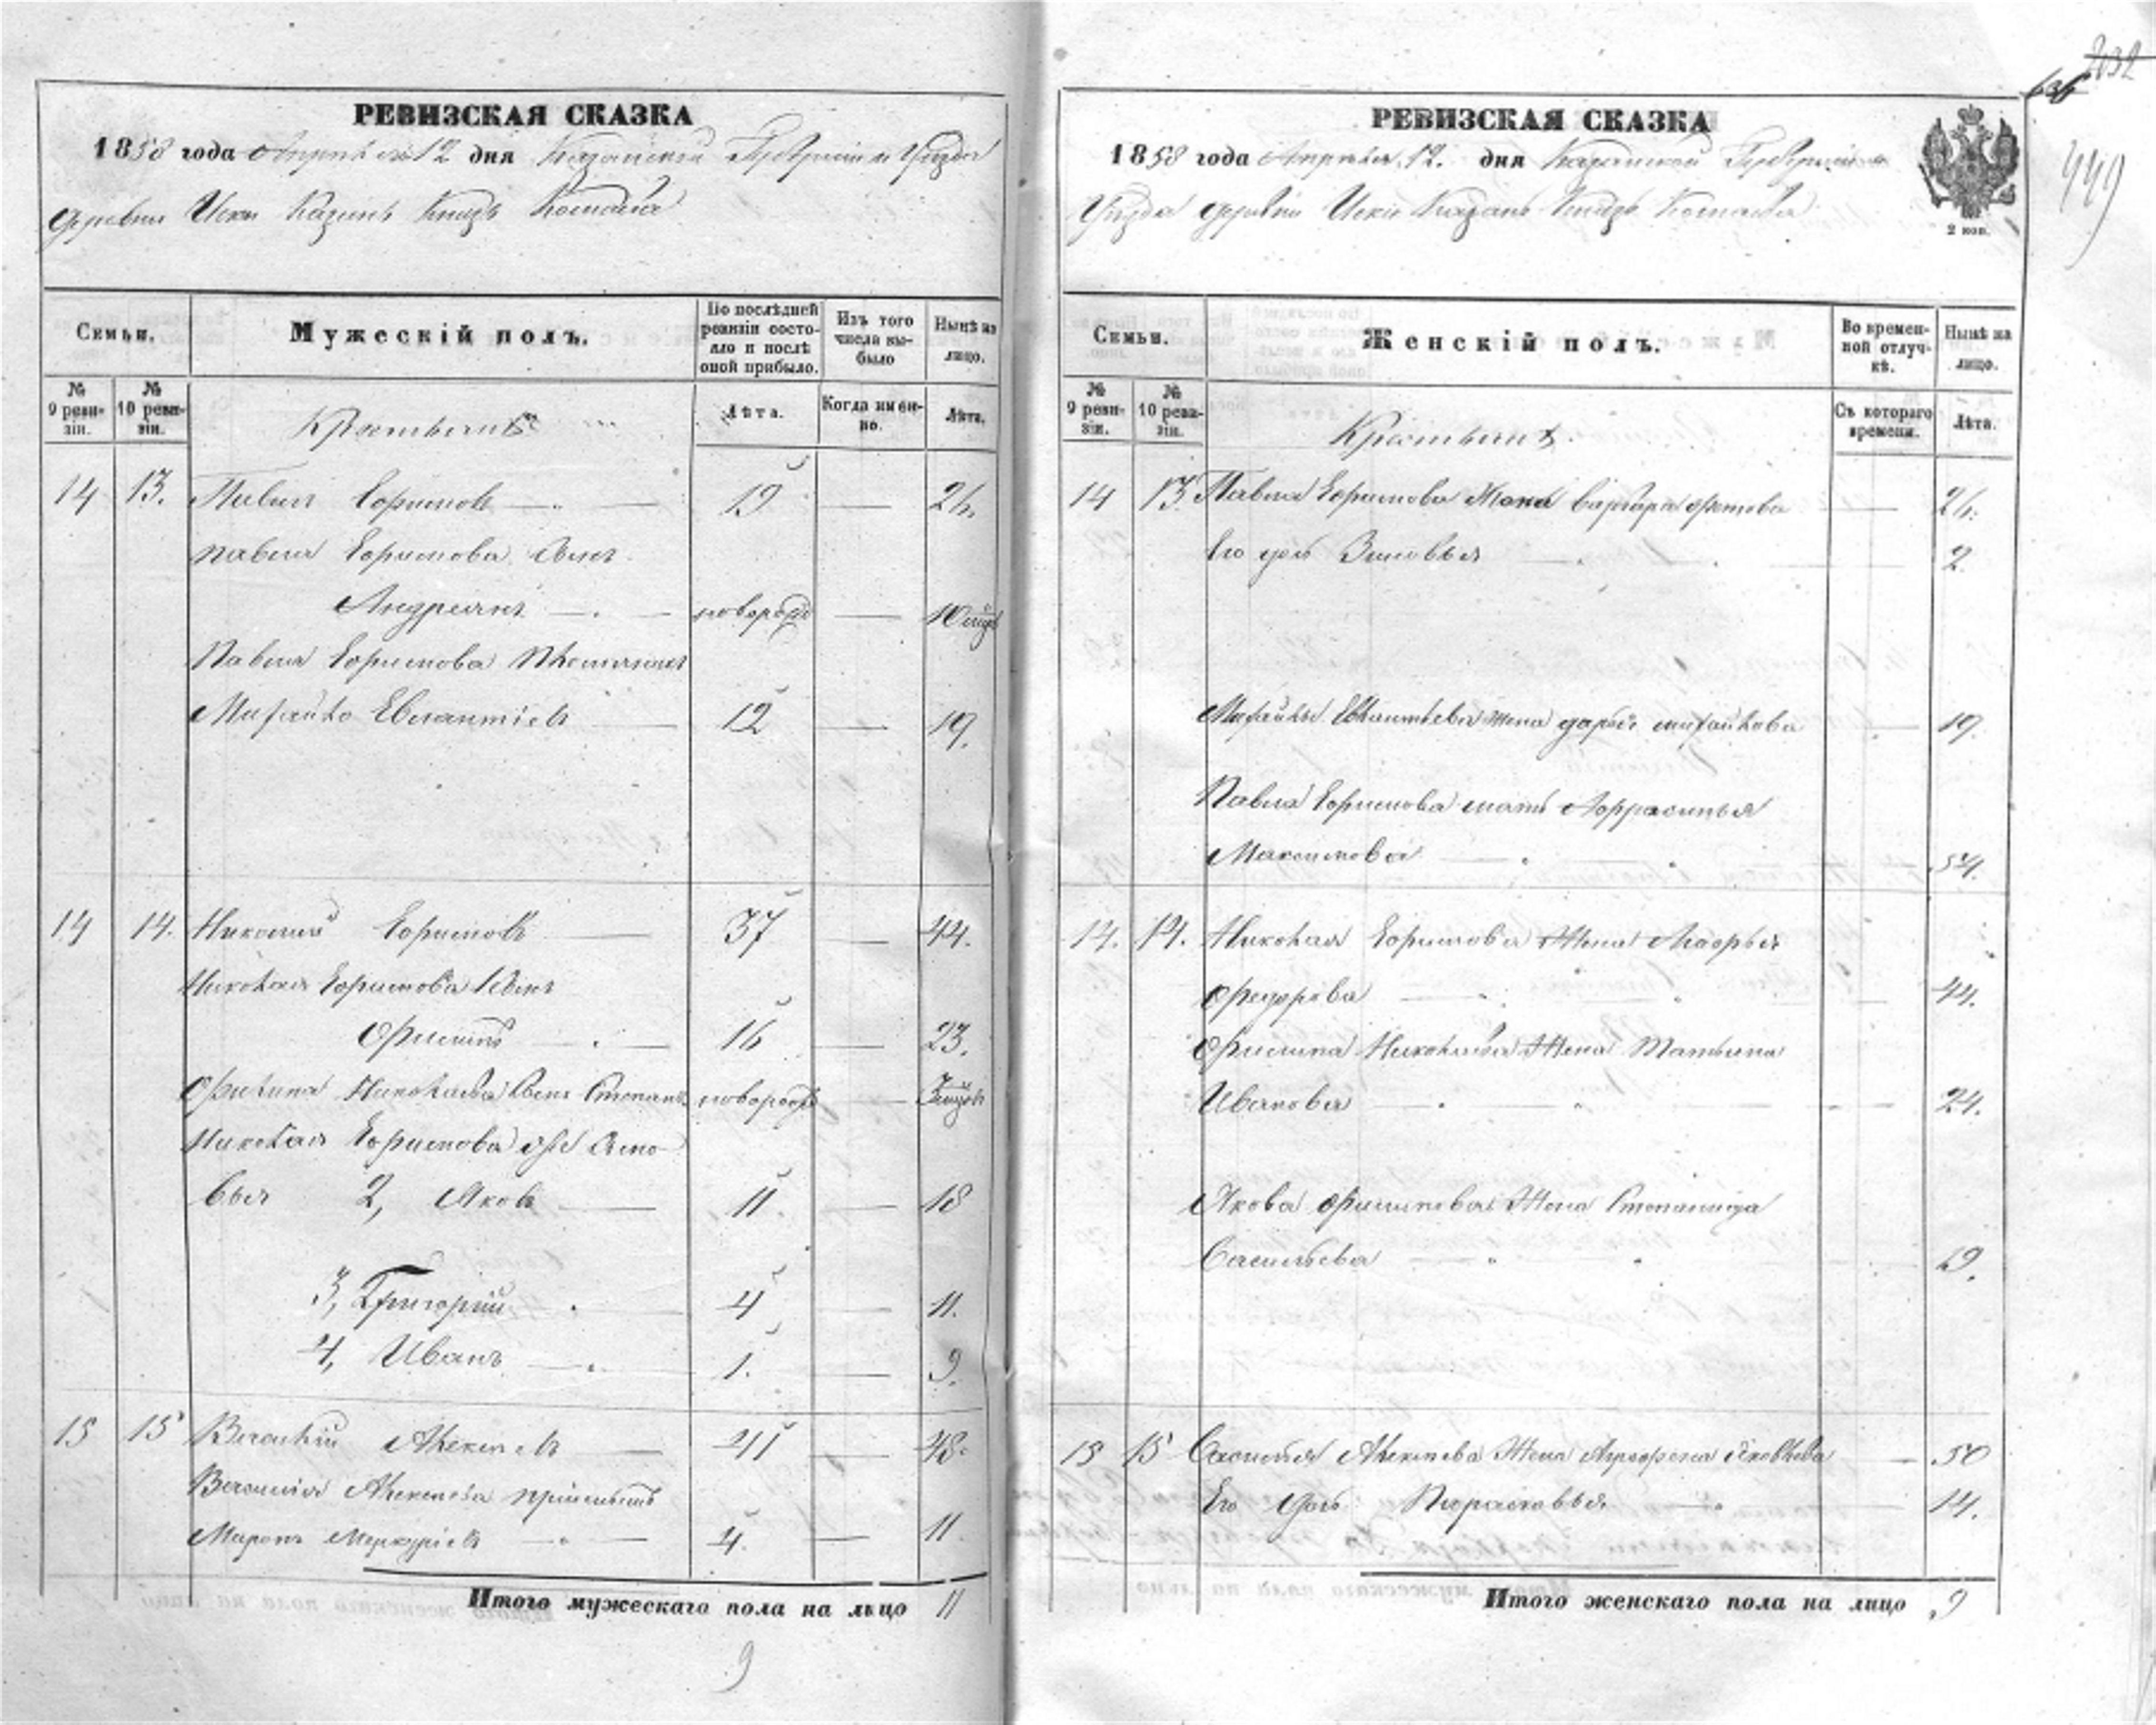 РЕВИЗСКАЯ СКАЗКА
1858 года Апреля 12 дня Казанской Губернии и Уезда
деревни Иски Казань Князь Комаева
Семьи.
Мужескій полъ.
По послѣдней ревизіи состояло и послѣ оной прибыло.
Изъ того числа выбыло
Нынѣ на лицо.
№ 9 ревизіи.
№ 10 ревизіи.
Крестьянъ
Лѣта.
Когда именно.
Лѣта.
14 13. Павел Ефимовъ 19 26.
Павла Ефимова сынъ
Андреянъ новорожд 10 мцъ
Павла Ефимова племянникъ
Михайло Евлантіевъ 12 19.
14 14. Николай Ефимовъ 37 44.
Николая Ефимова сынъ
Филипъ 16 23.
Филипа Николаева сынъ Степанъ новорожд
Николая Ефимова сыно-
вья 2, Яковъ 11. 18
3, Григорій 4 11.
4, Иванъ 1. 9.
15 15 Василій Алексѣевъ 41 48.
Василія Алексѣева пріемышъ
Миронъ Меркуріевъ 4. 11.
Итого мужескаго пола на лицо 11
9
632
449
РЕВИЗСКАЯ СКАЗКА
1858 года Апреля 12. дня Казанской Губерніи и
Уезда деревни Иски Казань Князь Комаева
2 коп.
Семьи.
Женскій полъ.
Во временной отлучкѣ.
Нынѣ на лицо.
№ 9 ревизіи.
№ 10 ревизіи.
Крестьянъ.
Съ котораго времени.
Лѣта.
14 13 Павла Ефимова жена Варвара 26.
Его дочь Зиновья 2.
Михайлы Евлантьева жена Дарья Михайлова 19.
Павла Ефимова мать Афрасинья
Максимова 54.
14. 14. Николая Ефимова жена Марья
Федорова 44.
Филипа Николаева жена Татьяна
Иванова 24.
Якова Филипова жена Степанида
Васильева 19.
15 15 Василья Алексѣева жена Яковлева 50
Его дочь Парасковья 14.
Итого женскаго пола на лицо 9